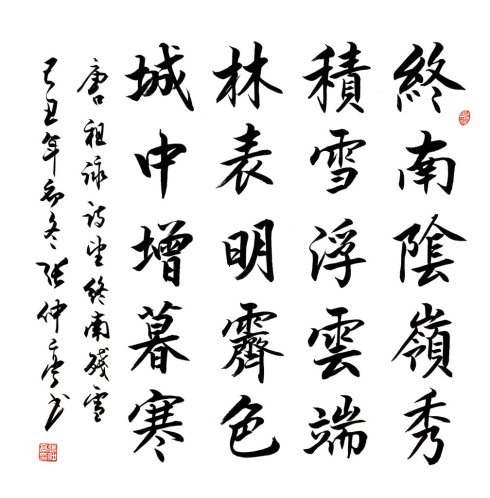 終南陰嶺秀
積雪浮雲端
林表明霽色
城中增暮寒
唐祖詠詩望終南殘雪
己丑年初冬張仲亭书